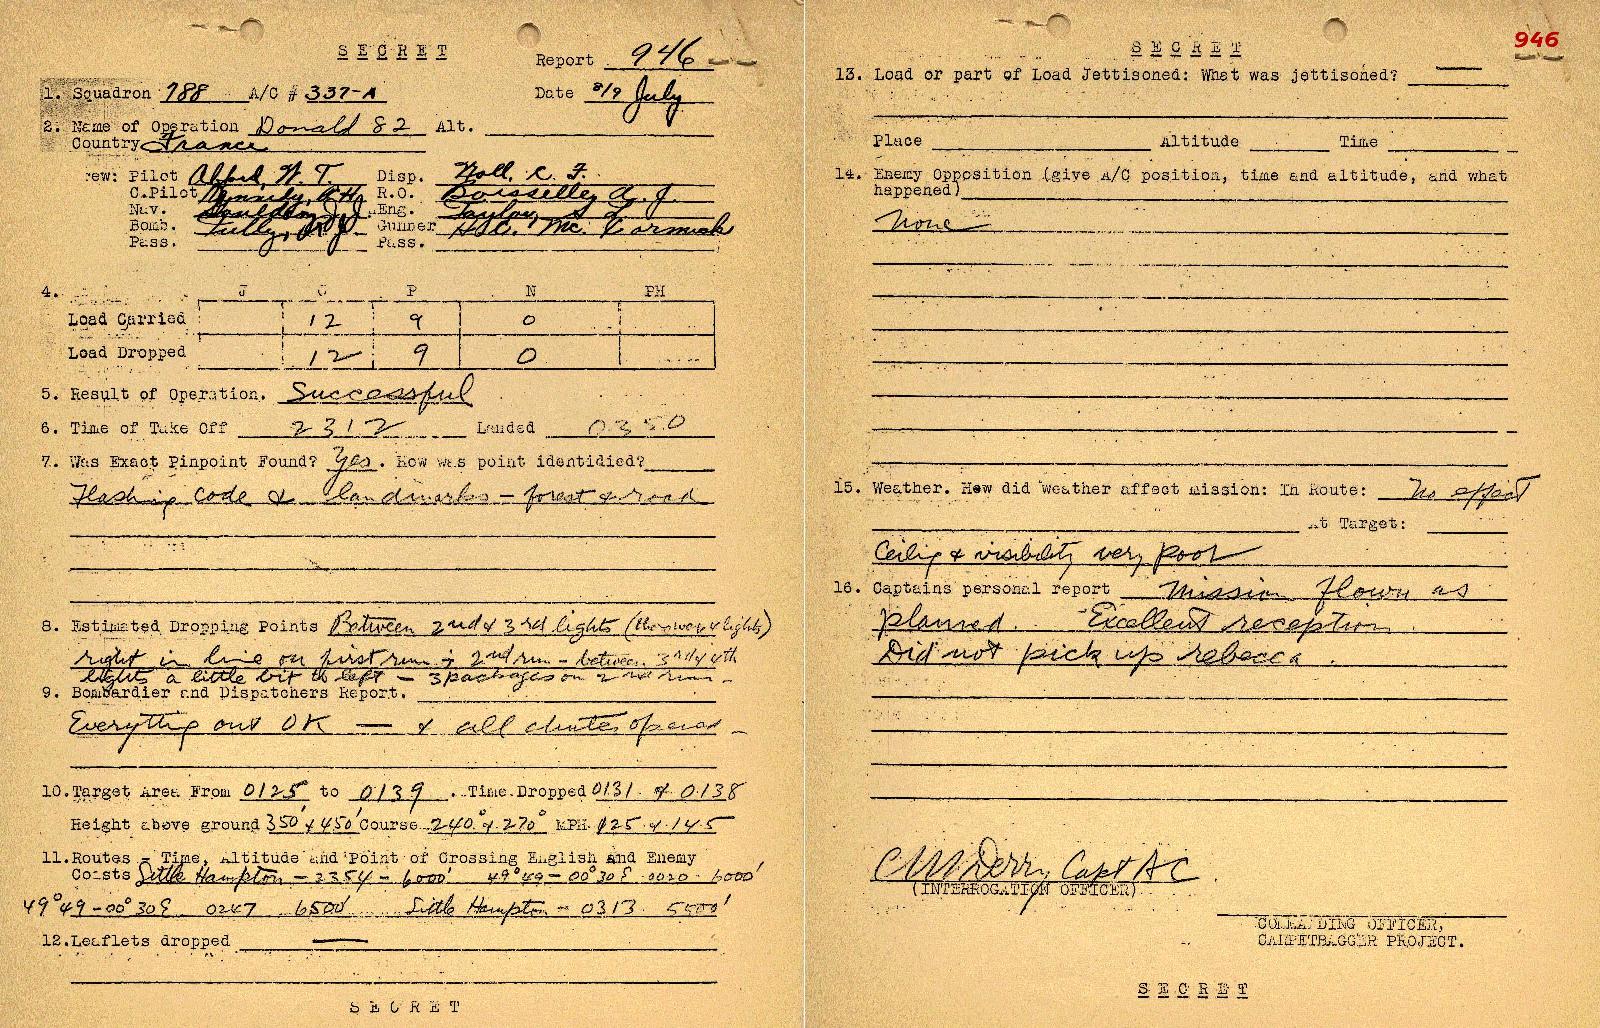 SECRET
Report 946
1. Squadron 788 A/C # 337-A Date 8/9 July
2. Name of Operation Donald 82 Alt.
Country France
rew: Pilot W. T. Disp. Noll, C. F.
C.Pilot R.O. Boisselle, A. J.
Nav. Eng. Taylor,
Bomb. Tully, Gunner Mc Cormick
Pass. Pass.
4. J C P N PH
Load Carried 12 9 0
Load Dropped 12 9 0
5. Result of Operation. Successful
6. Time of Take Off 2312 Landed 0350
7. Was Exact Pinpoint Found? Yes. How was point identidied?
Flashing code & landmarks - forest & road
8. Estimated Dropping Points Between 2nd & 3rd lights (there were 4 lights)
right in line on first run; 2nd run - between 3rd & 4th
lights a little bit to left - 3 packages on 2nd run -
9. Bombardier and Dispatchers Report.
Everything out OK — & all chutes opened -
10. Target Area From 0125 to 0139. Time Dropped 0131 & 0138
Height above ground 350' & 450' Course 240° & 270° MPH 125 & 145
11. Routes - Time, Altitude and Point of Crossing English and Enemy
Coasts Little Hampton - 2354 - 6000' 49°49 - 00°30E 0020 6000'
49°49 - 00°30E 0247 6500' Little Hampton - 0313 5500'
12. Leaflets dropped —
SECRET
SECRET
946
13. Load or part of Load Jettisoned: What was jettisoned? —
Place Altitude Time
14. Enemy Opposition (give A/C position, time and altitude, and what
happened)
None
15. Weather. How did weather affect mission: In Route: No effect
At Target:
Ceiling & visibility very poor
16. Captains personal report Mission flown as
planned. Excellent reception.
Did not pick up rebecca.
Derry Capt AC
(INTERROGATION OFFICER)
COMMANDING OFFICER,
CARPETBAGGER PROJECT.
SECRET